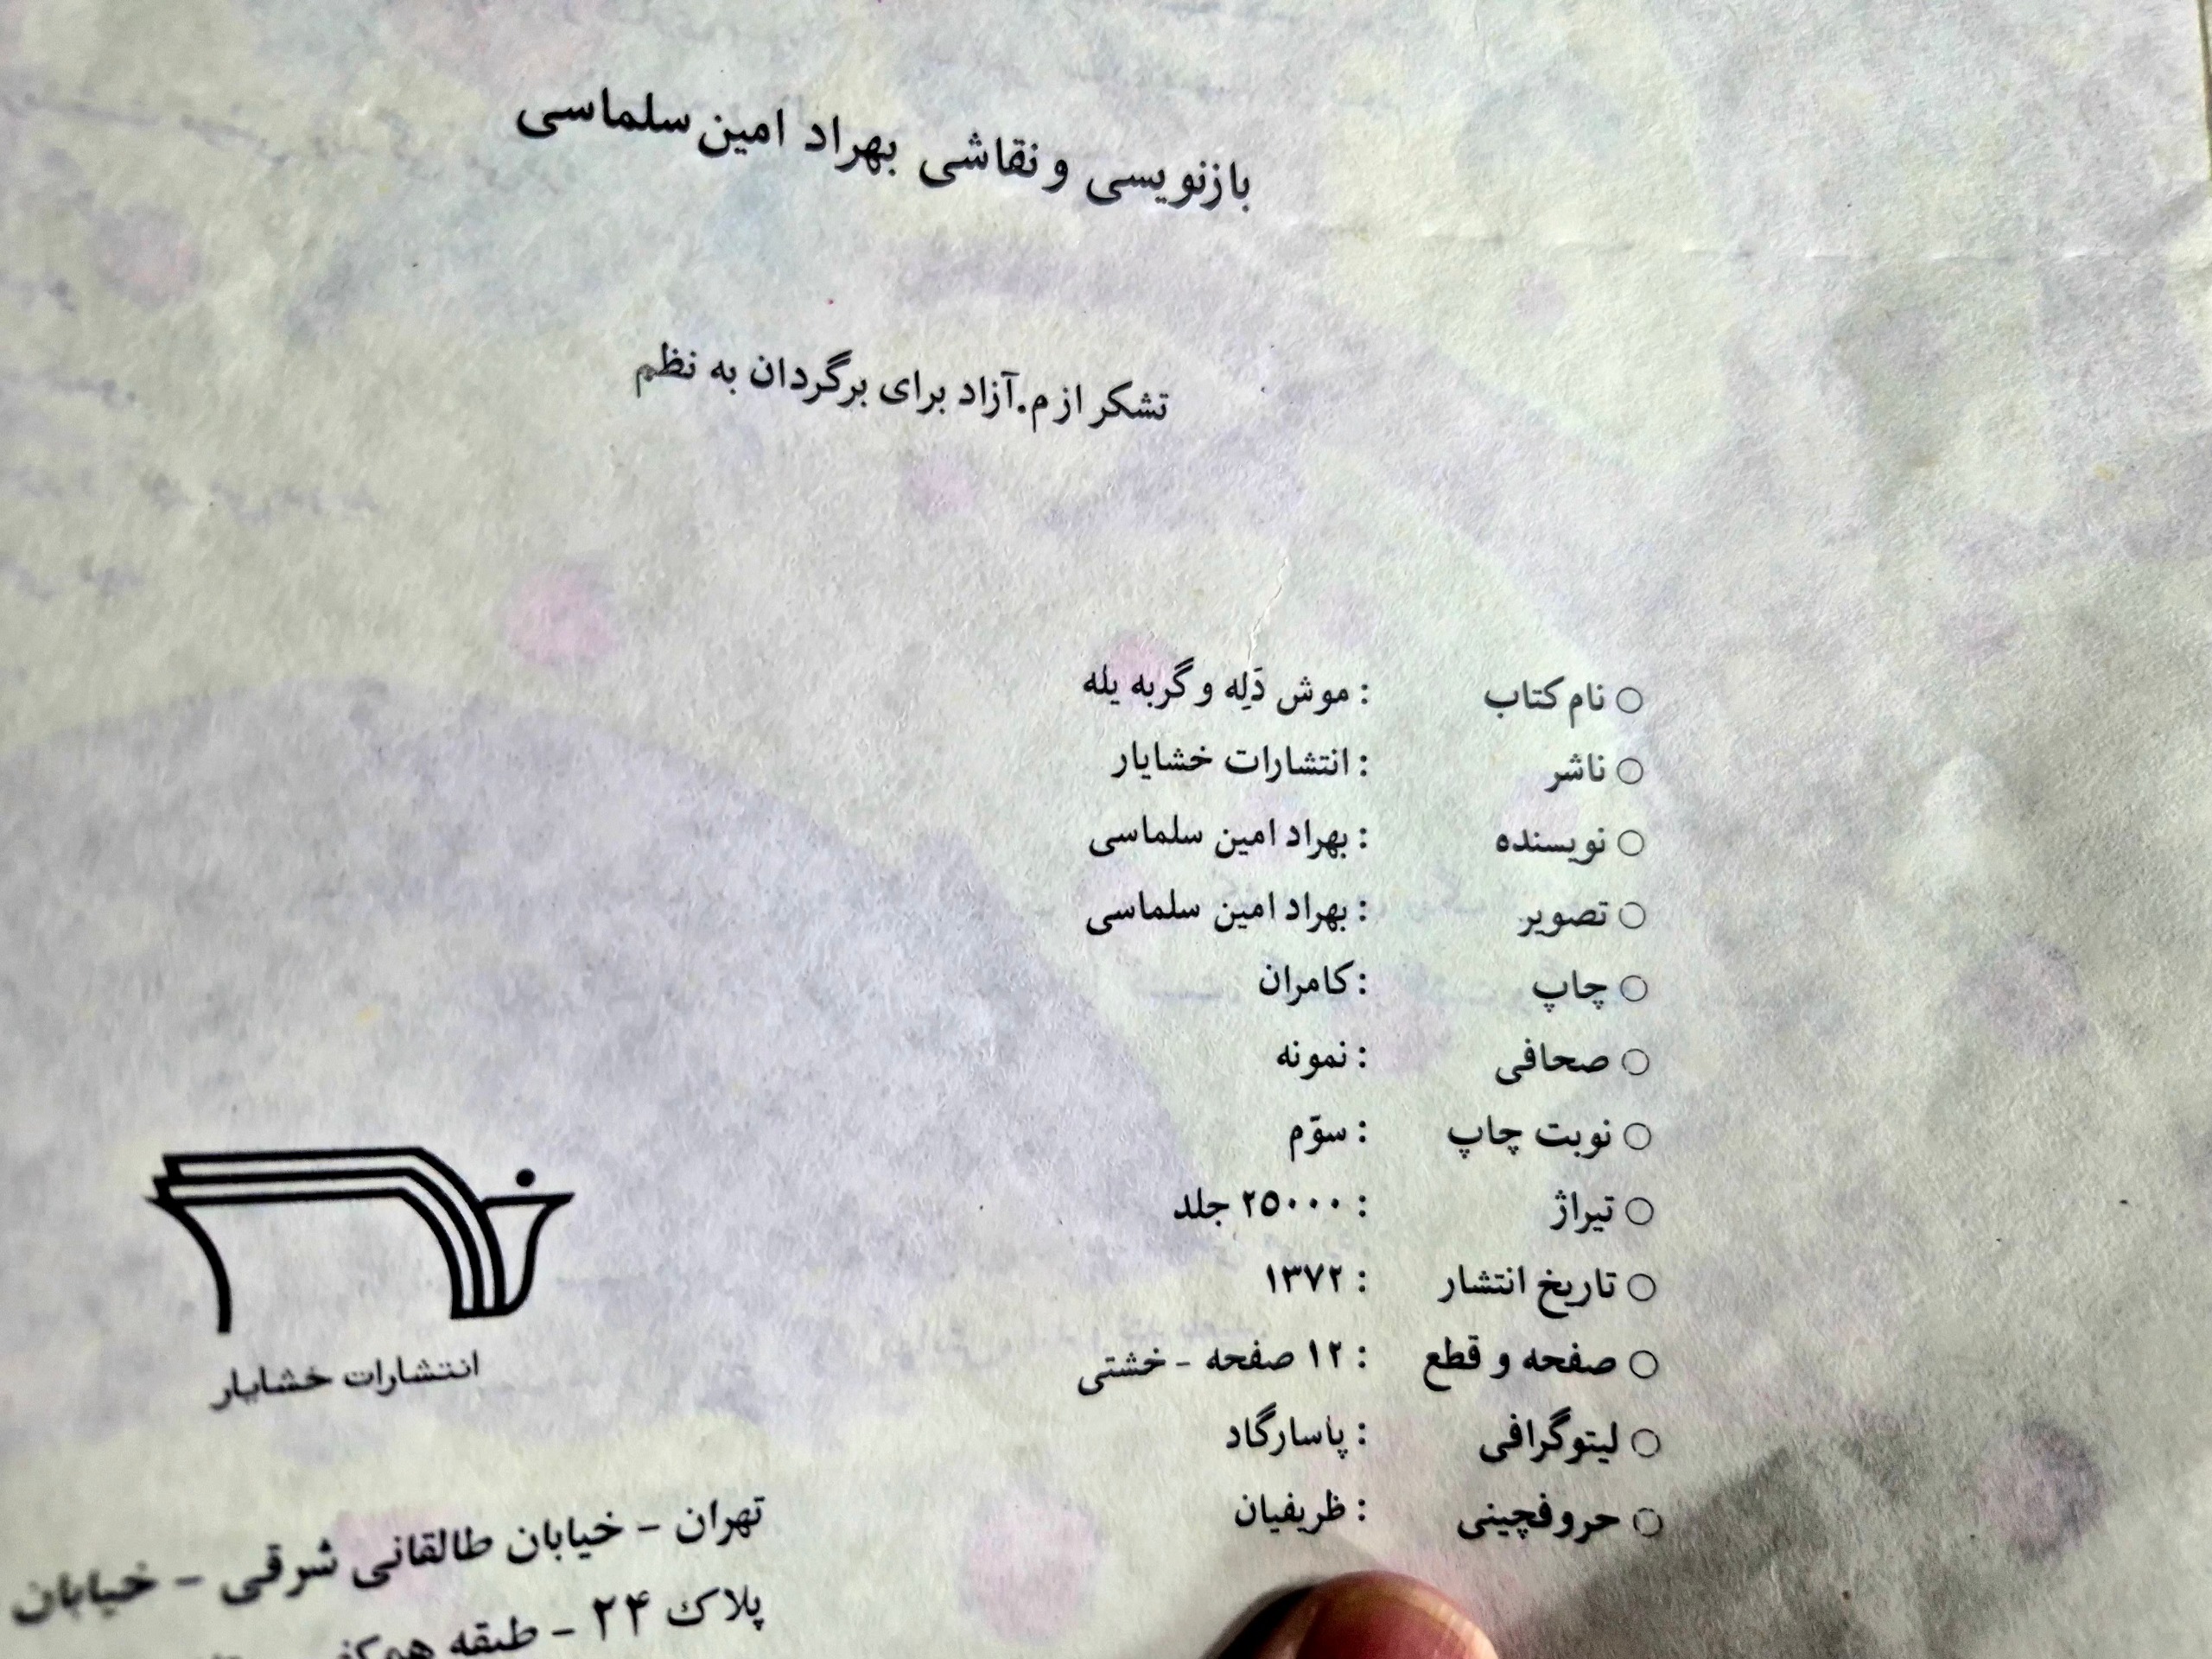 بازنویسی و نقاشی بهراد امین سلماسی
تشکر از م.آزاد برای برگردان به نظم
○ نام کتاب : موش دَلِه و گربه یله
○ ناشر : انتشارات خشایار
○ نویسنده : بهراد امین سلماسی
○ تصویر : بهراد امین سلماسی
○ چاپ : کامران
○ صحافی : نمونه
○ نوبت چاپ : سوّم
○ تیراژ : ۲۵۰۰۰ جلد
○ تاریخ انتشار : ۱۳۷۲
○ صفحه و قطع : ۱۲ صفحه - خشتی
○ لیتوگرافی : پاسارگاد
○ حروفچینی : ظریفیان
انتشارات خشایار
تهران - خیابان طالقانی شرقی - خیابان
پلاک ۲۴ - طبقه همکف